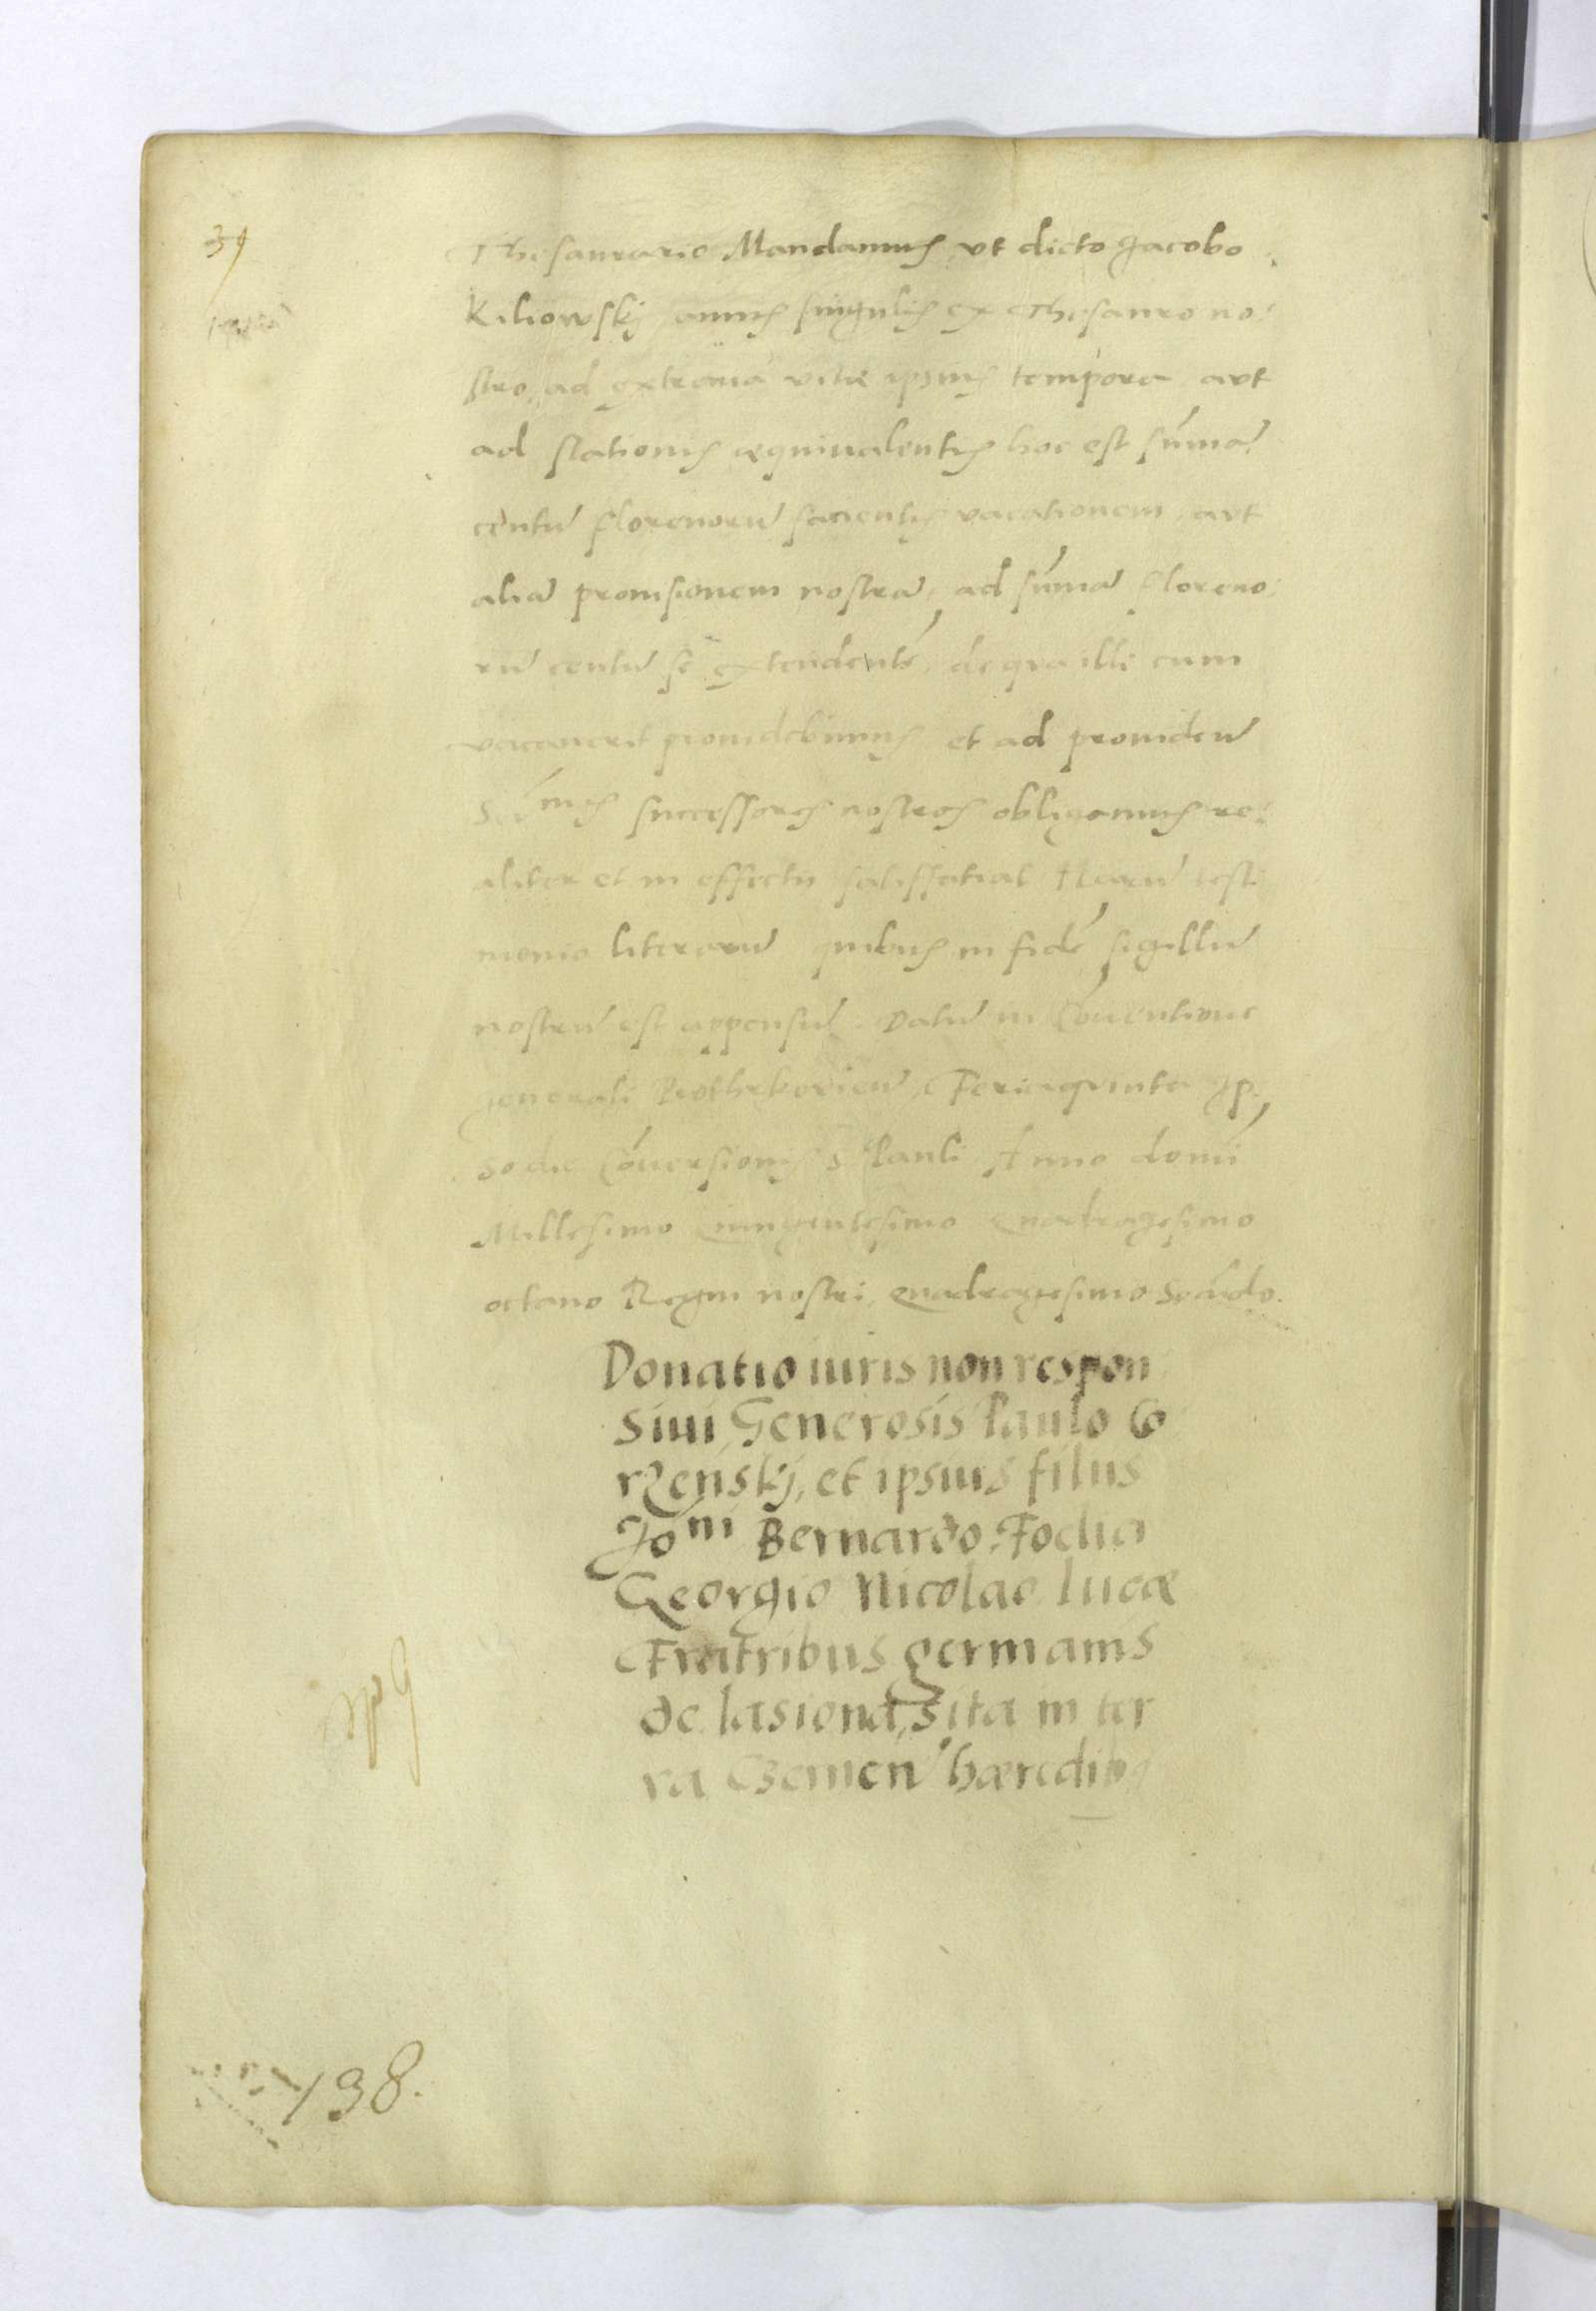 39
Thesaurario Mandamus vt dicto Jacobo
Kiliowskÿ, annis singulis ex Thesauro no:
stro, ad extrema vitæ ipsius tempora, aut
ad stationis æquiualentis hoc est sum̃ã
centũ florenorũ facientis vacationem, aut
aliã prouisionem nostrã, ad sum̃ã floreno:
rũ centũ se extendentẽ, de qua illi cum
vacauerit prouidebimus, et ad prouidenᵈ
successores nostros obligamus, re:
aliter et in effectu satisfatiat Harũ testi
monio literarũ quibus in fidẽ sigillũ
nostrũ est appensũ. Datũ in Cõuentione
generali Piothrkovienᵉ, Feria quinta Ip:
so die Cõuersionis S Pauli Anno domĩ
Millesimo Quingentesimo Quadragesimo
octauo Regni nostri, Quadragesimo Secũdo.
Donatio iuris non respon
siui, Generosis Paulo Co
rzenskÿ, et ipsius filiis
Joⁿⁱ Bernardo
Georgio Nicolao Lucæ
Fratribus germanis
de lasiona, sita in ter
ra Cemenᵉ hæredibꝰ
198.